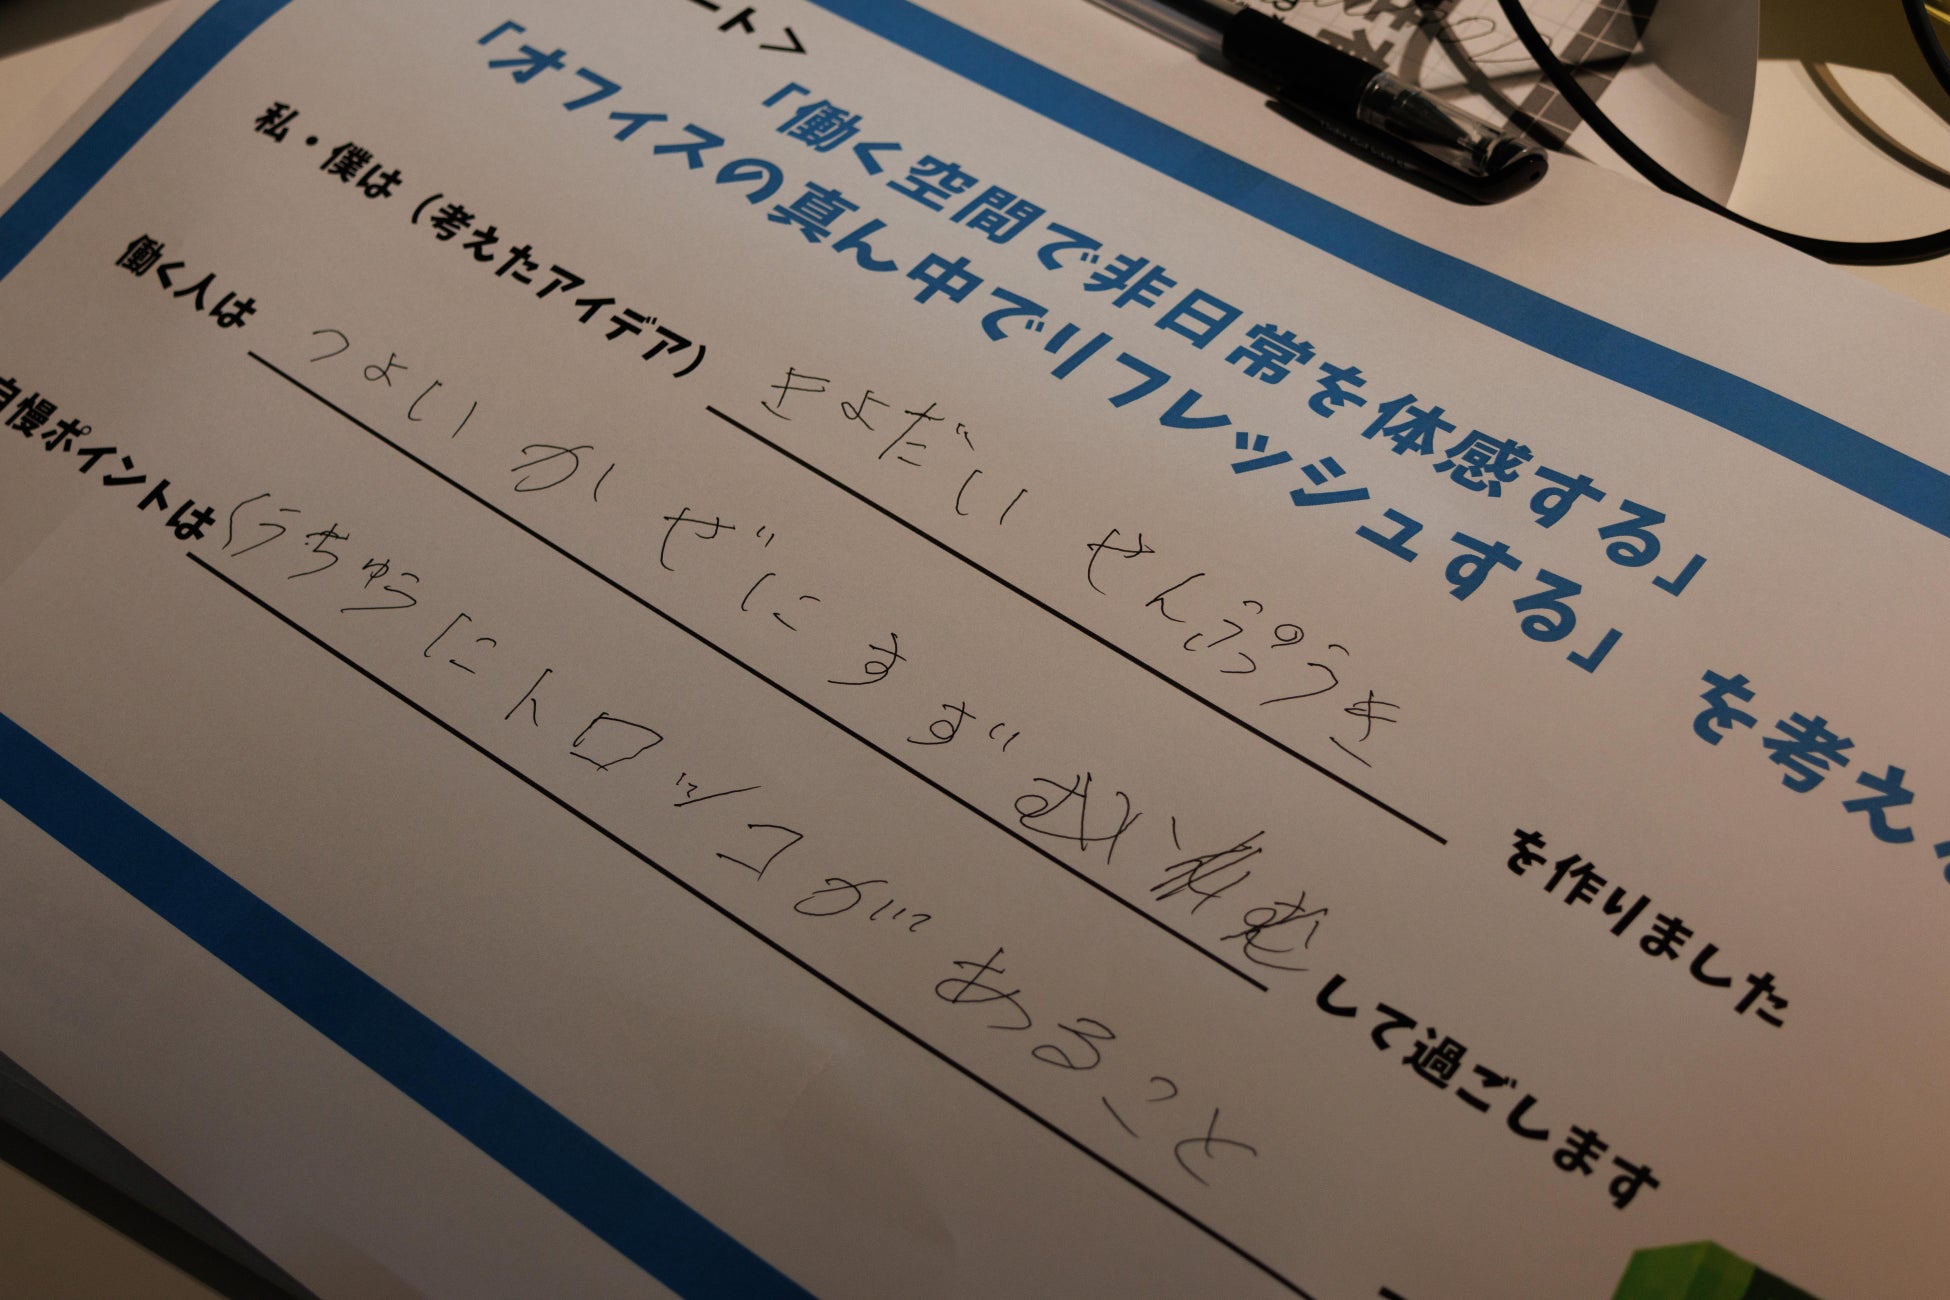 ート＞
「働く空間で非日常を体感する」
「オフィスの真ん中でリフレッシュする」 を考え
私・僕は（考えたアイデア） きょだい せんぷうき を作りました
働く人は つよい かぜにすず して過ごします
自慢ポイントは くうちゅうにトロッコが あること